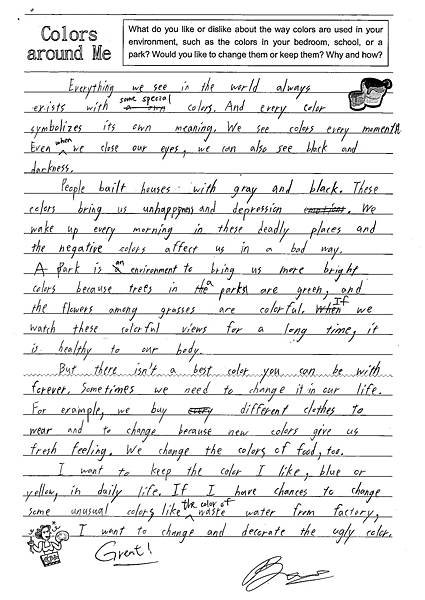 Colors
around Me
What do you like or dislike about the way colors are used in your
environment, such as the colors in your bedroom, school, or a
park? Would you like to change them or keep them? Why and how?
Everything we see in the world always
exists with some special colors. And every color
symbolizes its own meaning. We see colors every moment.
Even when we close our eyes, we can also see black and
darkness.
People bailt houses with gray and black. These
colors bring us unhappyness and depression emotions. We
wake up every morning in these deadly places and
the negative colors affect us in a bad way.
A Park is an environment to bring us more bright
colors because trees in the a parks are green, and
the flowers among grasses are colorful. When If we
watch these colorful views for a long time, it
is healthy to our body.
But there isn't a best color you can be with
forever. Sometimes we need to change it in our life.
For example, we buy every different clothes to
wear and to change because new colors give us
fresh feeling. We change the colors of food, too.
I want to keep the color I like, blue or
yellow, in daily life. If I have chances to change
some unusual colors, like the color of waste water from factory,
I want to change and decorate the ugly color.
Great!